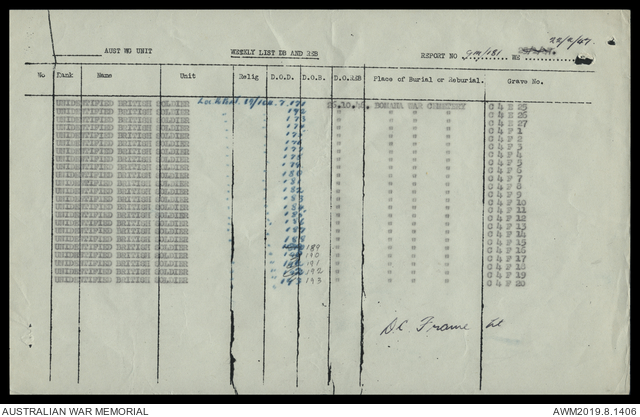 22/2/47.
AUST WG UNIT WEEKLY LIST DB AND REB REPORT NO gm/181 WE
No Rank Name Unit Relig D.O.D. D.O.B. D.O.REB Place of Burial or Reburial. Grave No.
UNIDENTIFIED BRITISH SOLDIER 171 26.10.46. BOMANA WAR CEMETERY C 4 E 25
UNIDENTIFIED BRITISH SOLDIER 172 " " " " C 4 E 26
UNIDENTIFIED BRITISH SOLDIER 173 " " " " C 4 E 27
UNIDENTIFIED BRITISH SOLDIER 174 " " " " C 4 F 1
UNIDENTIFIED BRITISH SOLDIER 175 " " " " C 4 F 2
UNIDENTIFIED BRITISH SOLDIER 176 " " " " C 4 F 3
UNIDENTIFIED BRITISH SOLDIER 177 " " " " C 4 F 4
UNIDENTIFIED BRITISH SOLDIER 178 " " " " C 4 F 5
UNIDENTIFIED BRITISH SOLDIER 179 " " " " C 4 F 6
UNIDENTIFIED BRITISH SOLDIER 180 " " " " C 4 F 7
UNIDENTIFIED BRITISH SOLDIER 181 " " " " C 4 F 8
UNIDENTIFIED BRITISH SOLDIER 182 " " " " C 4 F 9
UNIDENTIFIED BRITISH SOLDIER 183 " " " " C 4 F 10
UNIDENTIFIED BRITISH SOLDIER 184 " " " " C 4 F 11
UNIDENTIFIED BRITISH SOLDIER 185 " " " " C 4 F 12
UNIDENTIFIED BRITISH SOLDIER 186 " " " " C 4 F 13
UNIDENTIFIED BRITISH SOLDIER 187 " " " " C 4 F 14
UNIDENTIFIED BRITISH SOLDIER 188 " " " " C 4 F 15
UNIDENTIFIED BRITISH SOLDIER 189 " " " " C 4 F 16
UNIDENTIFIED BRITISH SOLDIER 190 " " " " C 4 F 17
UNIDENTIFIED BRITISH SOLDIER 191 " " " " C 4 F 18
UNIDENTIFIED BRITISH SOLDIER 192 " " " " C 4 F 19
UNIDENTIFIED BRITISH SOLDIER 193 193 " " " " C 4 F 20
D.C. Frame Lt
AUSTRALIAN WAR MEMORIAL AWM2019.8.1406